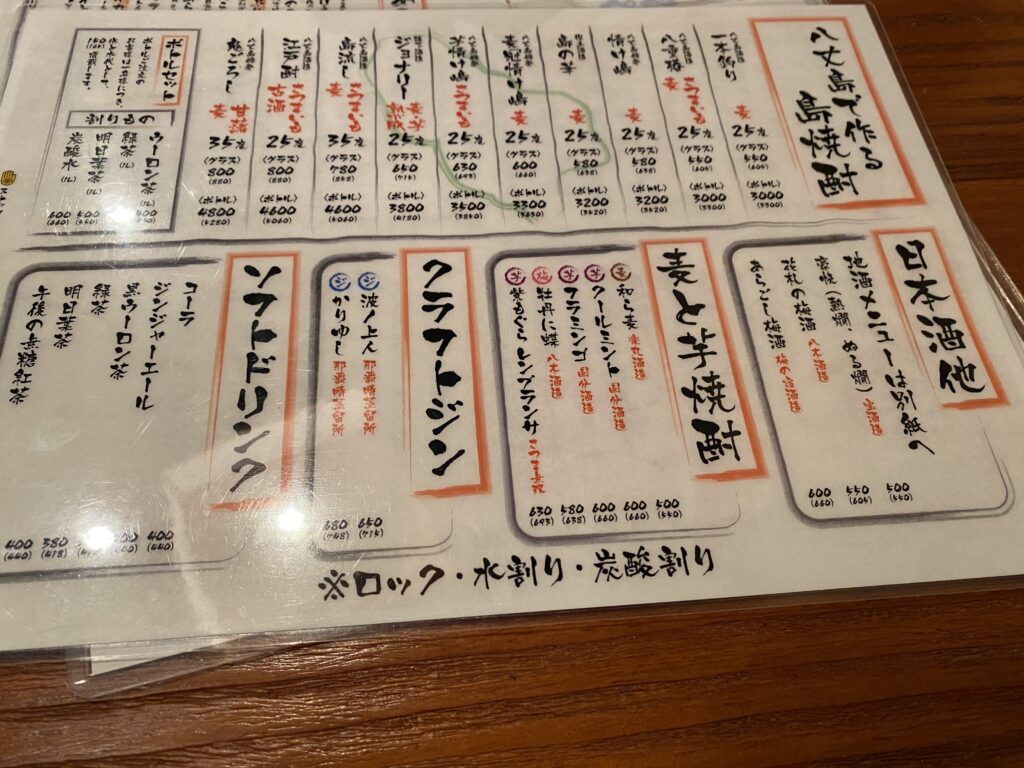 八丈島で作る
島焼酎
一本釣り 麦 25度 (グラス) 550 (605) (ボトル) 3000 (3300)
八重椿 25度 (グラス) 550 (605) (ボトル) 3000 (3300)
情け嶋 麦 25度 (グラス) 580 (638) (ボトル) 3200 (3520)
島の華 麦 25度 (グラス) 580 (638) (ボトル) 3200 (3520)
麦冠情け嶋 麦 25度 (グラス) 600 (660) (ボトル) 3300 (3630)
芋情け嶋 25度 (グラス) 630 (693) (ボトル) 3500 (3850)
ジョナリー 麦・芋 25度 (グラス) 650 (715) (ボトル) 3800 (4180)
島流し 麦 35度 (グラス) 780 (858) (ボトル) 4600 (5060)
江戸酎 古酒 25度 (グラス) 800 (880) (ボトル) 4600 (5060)
鬼ごろし 麦 甘藷 35度 (グラス) 800 (880) (ボトル) 4800 (5280)
ボトルセット
ボトルご注文の
お客様は一名様につき、
氷と水代として、
150 (165) 頂戴します。
割りもの
ウーロン茶 (1L)
緑茶 (1L)
明日葉茶 (1L)
炭酸水 (1L) 600 (660)
日本酒他
地酒メニューは別紙へ
(熱燗、ぬる燗) 500 (550)
花札の梅酒 八木酒造 550 (605)
あらごし梅酒 梅の宿酒造 600 (660)
麦と芋焼酎
麦 和ら麦 500 (550)
芋 クールミント 国分酒造 600 (660)
芋 フラミンゴ 国分酒造 600 (660)
梅 牡丹に蝶 八木酒造 580 (638)
芋 紫もぐらレンブランサ さつま無双 630 (693)
クラフトジン
ジ 波ノ上人 那覇蒸留所 650 (715)
ジ かりゆし 那覇蒸留所 680 (748)
ソフトドリンク
コーラ 400 (440)
ジンジャーエール
黒ウーロン茶
緑茶 380 (418)
明日葉茶 400 (440)
午後の無糖紅茶
※ロック・水割り・炭酸割り